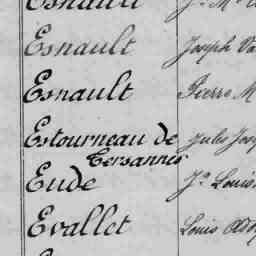 Esnault
Esnault Joseph
Esnault Pierre M
Estourneau de Jules
Tersannes
Eude Jn Louis
Evallet Louis